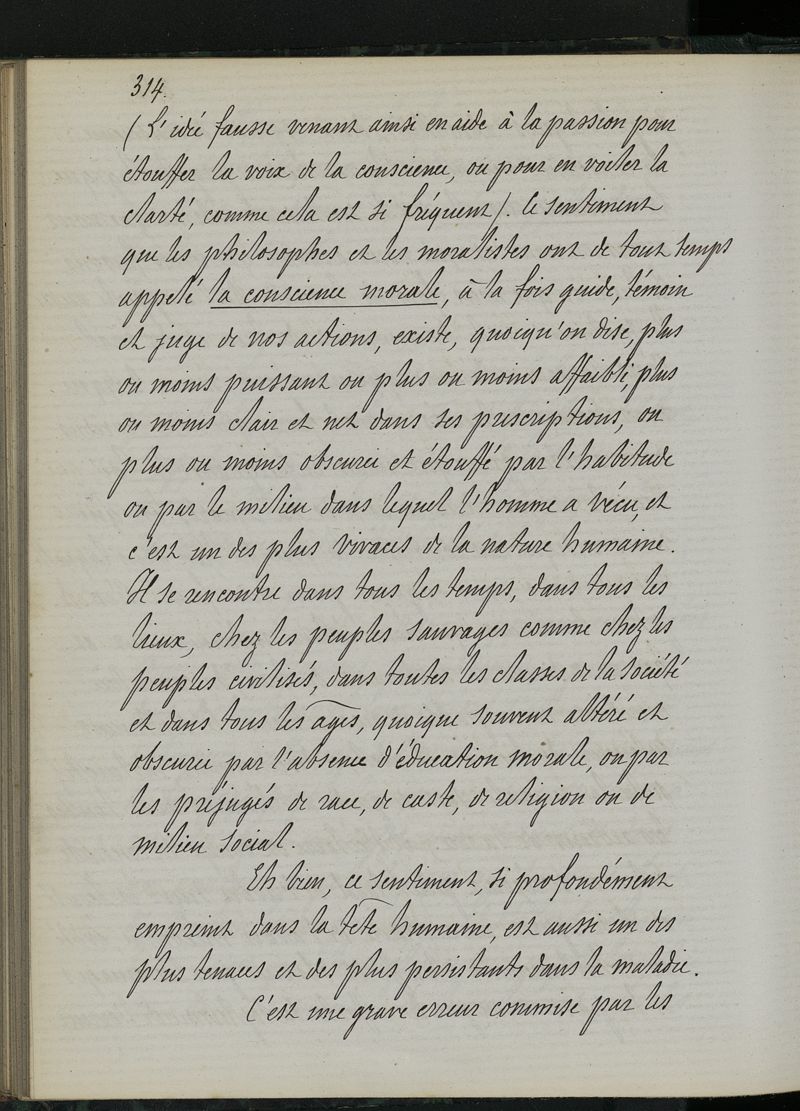 314.
(L'idée fausse venant ainsi en aide à la passion pour
étouffer la voix de la conscience, ou pour en voiler la
clarté, comme cela est si fréquent). Ce sentiment
que les philosophes et les moralistes ont de tout temps
appelé la conscience morale, à la fois guide, témoin
et juge de nos actions, existe, quoiqu'on dise, plus
ou moins puissant ou plus ou moins affaibli, plus
ou moins clair et net dans ses prescriptions, ou
plus ou moins obscurci et étouffé par l'habitude
ou par le milieu dans lequel l'homme a vécu, et
c'est un des plus vivaces de la nature humaine.
Il se rencontre dans tous les temps, dans tous les
lieux, chez les peuples sauvages comme chez les
peuples civilisés, dans toutes les classes de la société
et dans tous les âges, quoique souvent altéré et
obscurci par l'absence d'éducation morale, ou par
les préjugés de race, de caste, de religion ou de
milieu social.
Eh bien, ce sentiment, si profondément
empreint dans la tête humaine, est aussi un des
plus tenaces et des plus persistants dans la maladie.
C'est une grave erreur commise par les